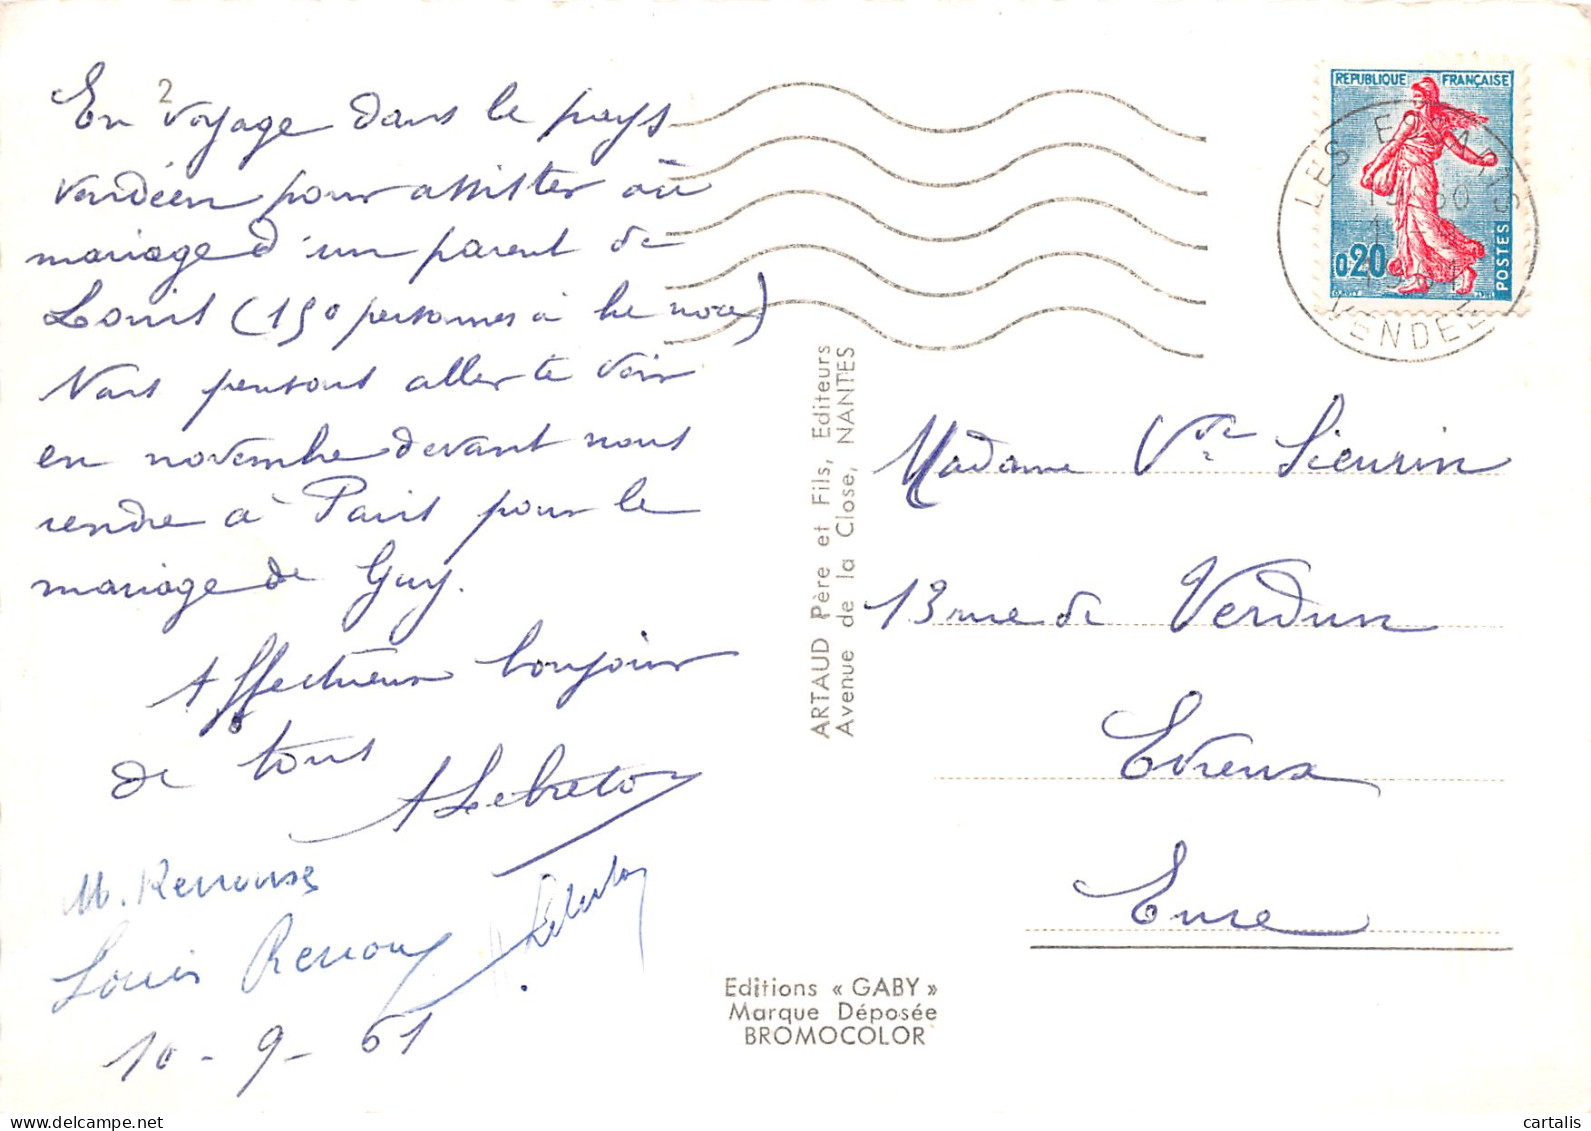 2
En voyage dans le pays
vendéen pour assister au
mariage d'un parent de
Louis (150 personnes à la noce)
Nous pensons aller te voir
en novembre devant nous
rendre à Paris pour le
mariage de Guy.
Affectueux bonjour
de tous
ALebreton
M. Renouse
Louis Renouf
10-9-61
REPUBLIQUE FRANÇAISE
0,20
POSTES
LES ESSARTS
VENDEE
ARTAUD Père et Fils, Editeurs
Avenue de la Close, NANTES
Madame Vve Sieurin
13 rue de Verdun
Evreux
Eure
Editions « GABY »
Marque Déposée
BROMOCOLOR
cartalis
delcampe.net